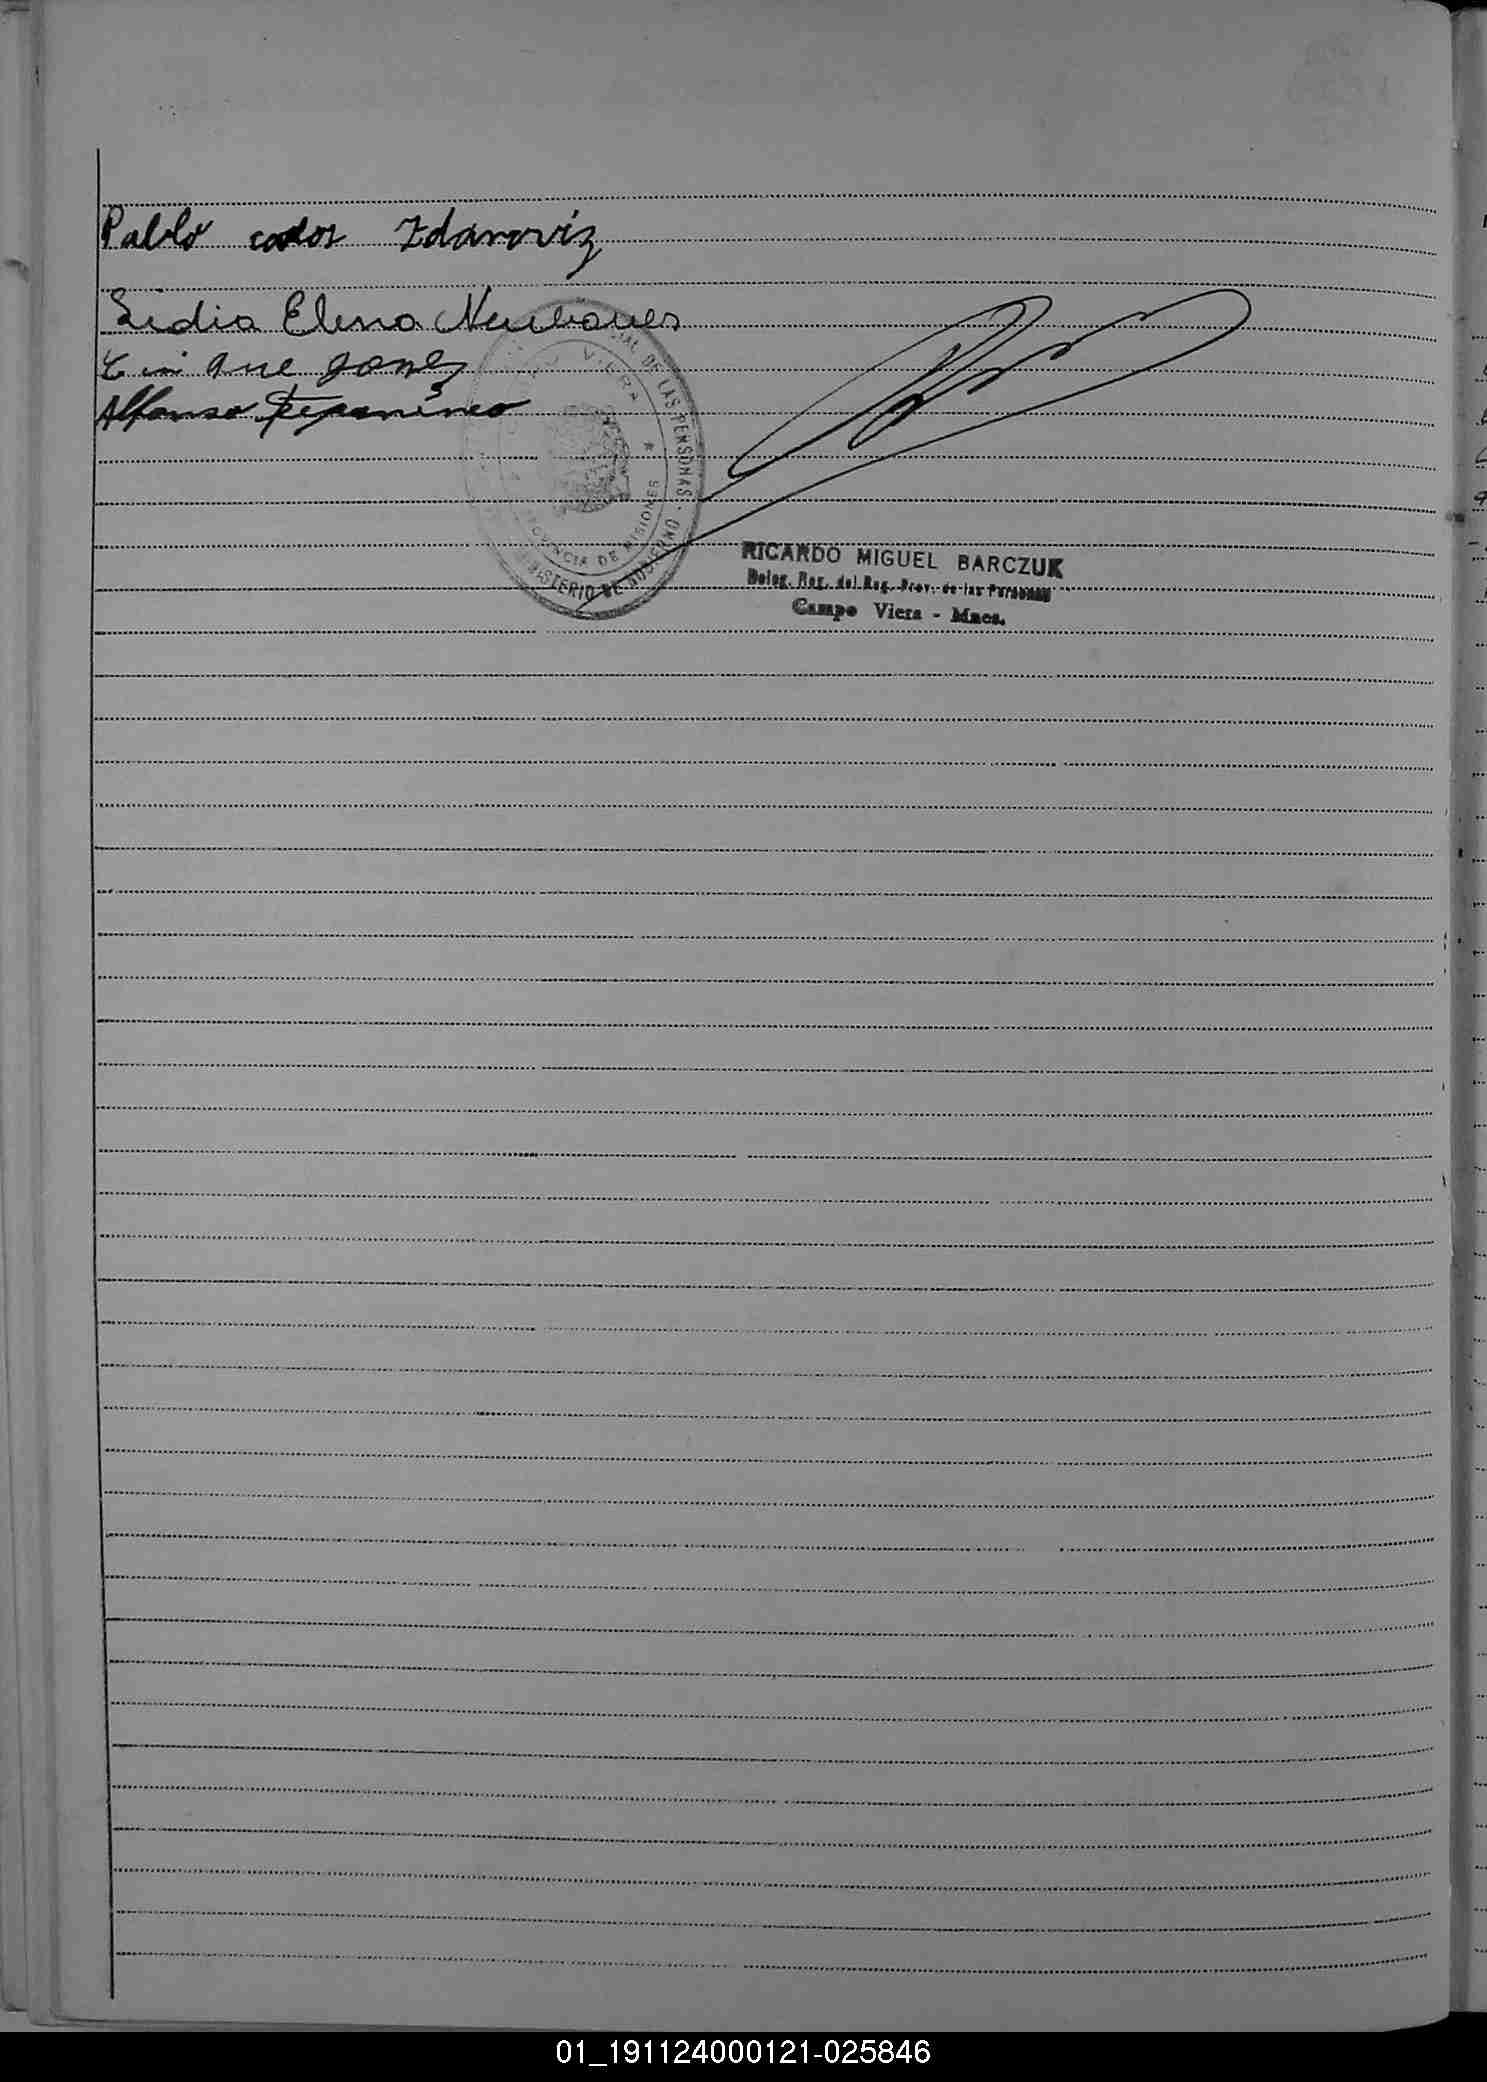 Pablo carlos Zdanoviz
Lidia Elena Neubauer
Alfonso
CAMPO VIERA
DE LAS PERSONAS
PROVINCIA DE MISIONES
MINISTERIO DE GOBIERNO
RICARDO MIGUEL BARCZUK
Deleg. Reg. del Reg. Prov. de las Personas
Campo Viera - Mnes.
01_191124000121-025846